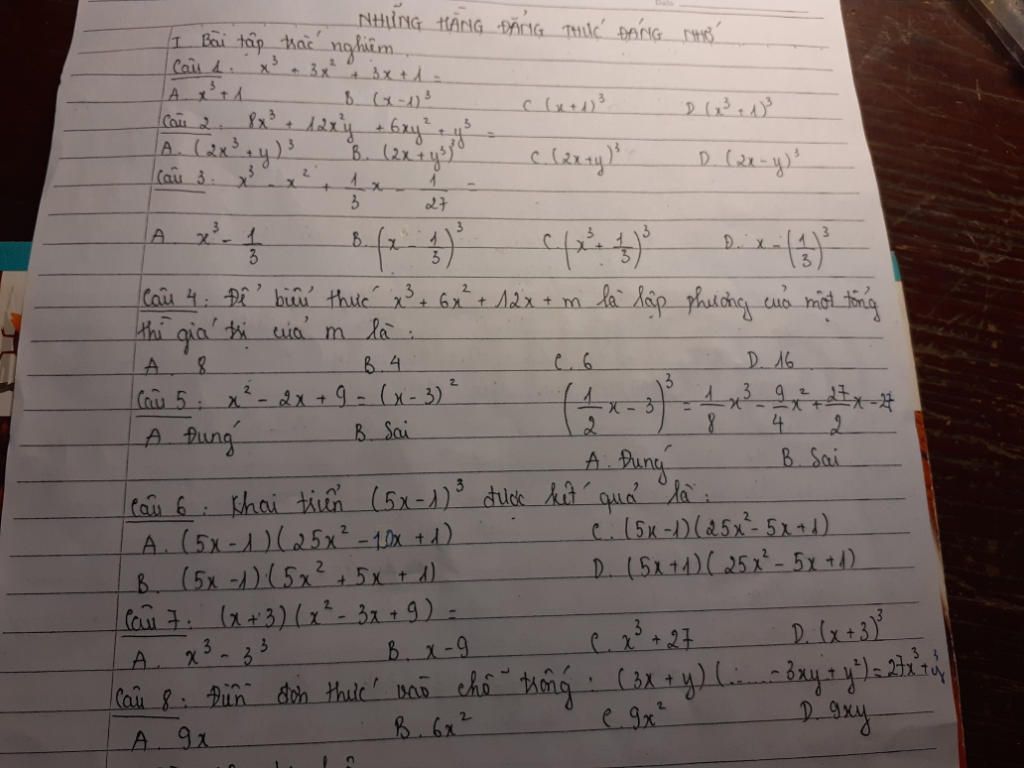 NHỮNG HẰNG ĐẲNG THỨC ĐÁNG NHỚ
I. Bài tập trắc nghiệm
Câu 1: x³ + 3x² + 3x + 1 =
A. x³ + 1 B. (x-1)³ C. (x+1)³ D. (x³+1)³
Câu 2: 8x³ + 12x²y + 6xy² + y³ =
A. (2x³ + y)³ B. (2x + y³)³ C. (2x+y)³ D. (2x-y)³
Câu 3: x³ - x² + 1/3 x - 1/27 =
A. x³ - 1/3 B. (x - 1/3)³ C. (x³ + 1/3)³ D. x - (1/3)³
Câu 4: Để biểu thức x³ + 6x² + 12x + m là lập phương của một tổng
thì giá trị của m là:
A. 8 B. 4 C. 6 D. 16
Câu 5: x² - 2x + 9 = (x-3)² (1/2 x - 3)³ = 1/8 x³ - 9/4 x² + 27/2 x - 27
A. Đúng B. Sai
A. Đúng B. Sai
Câu 6: Khai triển (5x-1)³ được kết quả là:
A. (5x-1)(25x² - 10x + 1) C. (5x-1)(25x² - 5x + 1)
B. (5x-1)(5x² + 5x + 1) D. (5x+1)(25x² - 5x + 1)
Câu 7: (x+3)(x² - 3x + 9) =
A. x³ - 3³ B. x - 9 C. x³ + 27 D. (x+3)³
Câu 8: Điền đơn thức vào chỗ trống: (3x + y)(..... - 3xy + y²) = 27x³ + y³
A. 9x B. 6x² C. 9x² D. 9xy